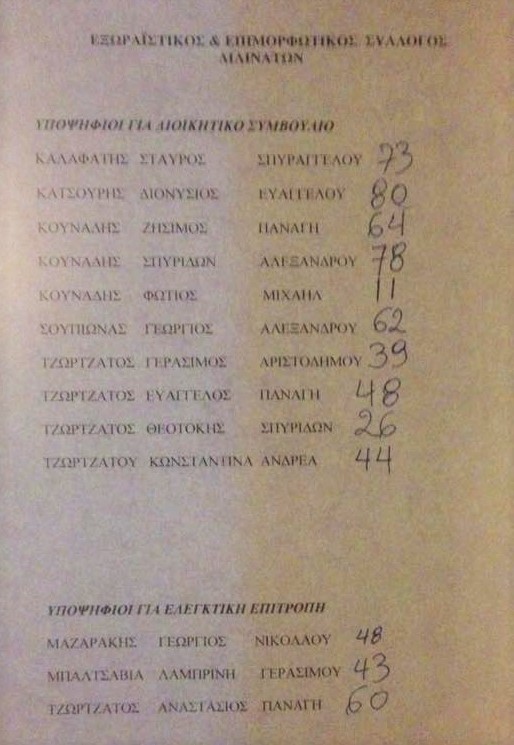 ΕΞΩΡΑΪΣΤΙΚΟΣ & ΕΠΙΜΟΡΦΩΤΙΚΟΣ ΣΥΛΛΟΓΟΣ
ΔΙΛΙΝΑΤΩΝ
ΥΠΟΨΗΦΙΟΙ ΓΙΑ ΔΙΟΙΚΗΤΙΚΟ ΣΥΜΒΟΥΛΙΟ
ΚΑΛΑΦΑΤΗΣ ΣΤΑΥΡΟΣ ΣΠΥΡΑΓΓΕΛΟΥ 73
ΚΑΤΣΟΥΡΗΣ ΔΙΟΝΥΣΙΟΣ ΕΥΑΓΓΕΛΟΥ 80
ΚΟΥΝΑΔΗΣ ΖΗΣΙΜΟΣ ΠΑΝΑΓΗ 64
ΚΟΥΝΑΔΗΣ ΣΠΥΡΙΔΩΝ ΑΛΕΞΑΝΔΡΟΥ 78
ΚΟΥΝΑΔΗΣ ΦΩΤΙΟΣ ΜΙΧΑΗΛ 11
ΣΟΥΠΙΩΝΑΣ ΓΕΩΡΓΙΟΣ ΑΛΕΞΑΝΔΡΟΥ 62
ΤΖΩΡΤΖΑΤΟΣ ΓΕΡΑΣΙΜΟΣ ΑΡΙΣΤΟΔΗΜΟΥ 39
ΤΖΩΡΤΖΑΤΟΣ ΕΥΑΓΓΕΛΟΣ ΠΑΝΑΓΗ 48
ΤΖΩΡΤΖΑΤΟΣ ΘΕΟΤΟΚΗΣ ΣΠΥΡΙΔΩΝ 26
ΤΖΩΡΤΖΑΤΟΥ ΚΩΝΣΤΑΝΤΙΝΑ ΑΝΔΡΕΑ 44
ΥΠΟΨΗΦΙΟΙ ΓΙΑ ΕΛΕΓΚΤΙΚΗ ΕΠΙΤΡΟΠΗ
ΜΑΖΑΡΑΚΗΣ ΓΕΩΡΓΙΟΣ ΝΙΚΟΛΑΟΥ 48
ΜΠΑΛΤΣΑΒΙΑ ΛΑΜΠΡΙΝΗ ΓΕΡΑΣΙΜΟΥ 43
ΤΖΩΡΤΖΑΤΟΣ ΑΝΑΣΤΑΣΙΟΣ ΠΑΝΑΓΗ 60